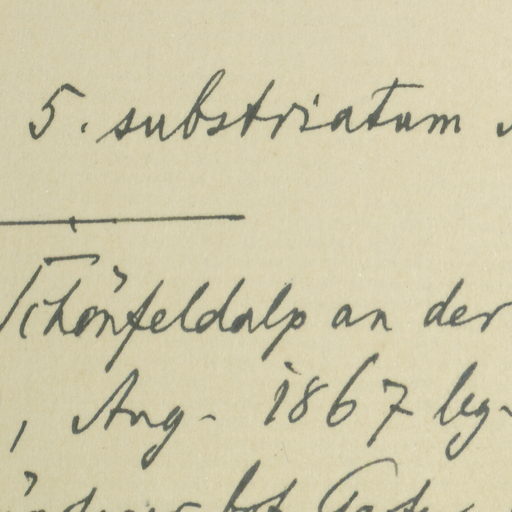 5. substriatum
Schönfeldalp an der
, Aug. 1867 leg.
bot.